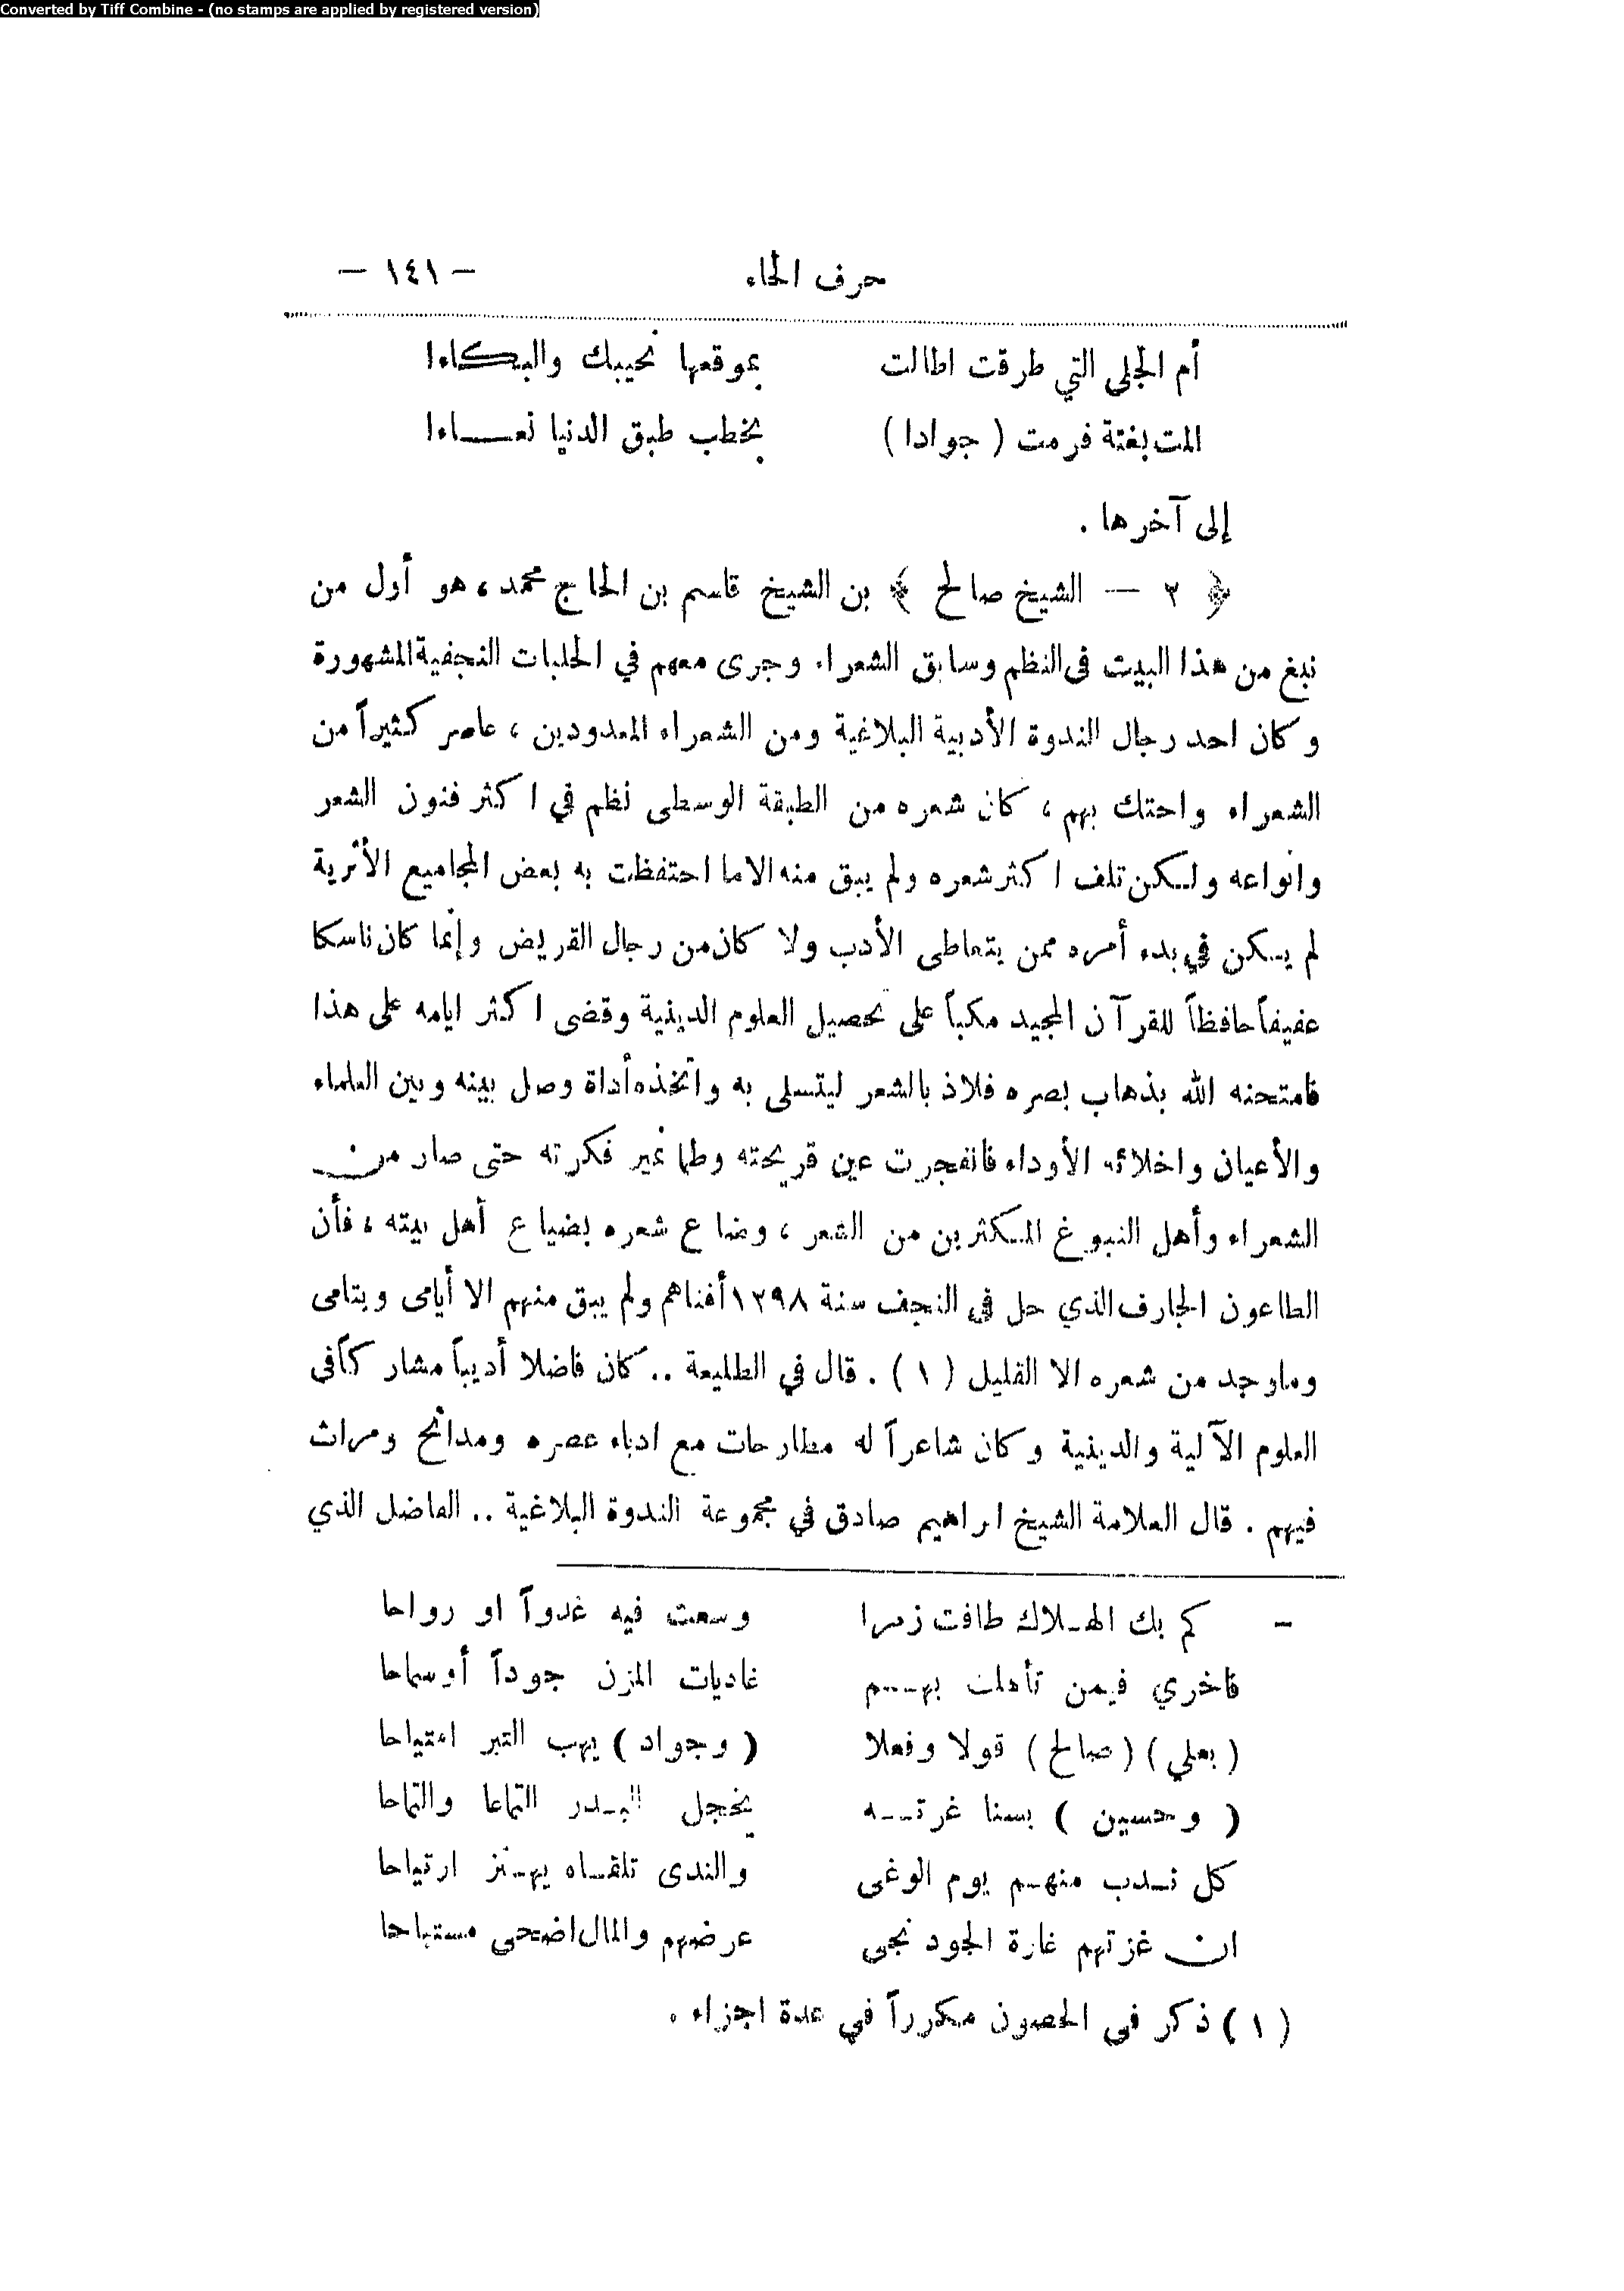 Converted by Tiff Combine - (no stamps are applied by registered version)
حرف الحاء – ١٤١ –
أم الجلى التي طرقت اطالت بموقعها نحيبك والبكاءا
المت بغتة فرمت ( جوادا ) بخطب طبق الدنيا نعاءا
إلى آخرها .
﴿ ٢ — الشيخ صالح ﴾ بن الشيخ قاسم بن الحاج محمد ، هو أول من
نبغ من هذا البيت في النظم وسابق الشعراء وجرى معهم في الحلبات النجفية المشهورة
وكان احد رجال الندوة الأدبية البلاغية ومن الشعراء المعدودين ، عاصر كثيراً من
الشعراء واحتك بهم ، كان شعره من الطبقة الوسطى نظم في اكثر فنون الشعر
وانواعه ولكن تلف اكثر شعره ولم يبق منه الا ما احتفظت به بعض المجاميع الأثرية
لم يكن في بدء أمره ممن يتعاطى الأدب ولا كان من رجال القريض وإنما كان ناسكا
عفيفاً حافظاً للقرآن المجيد مكباً على تحصيل العلوم الدينية وقضى اكثر ايامه على هذا
فامتحنه الله بذهاب بصره فلاذ بالشعر ليتسلى به واتخذه أداة وصل بينه وبين العلماء
والأعيان واخلائه الأوداء فانفجرت عين قريحته وطما نمير فكرته حتى صار من
الشعراء وأهل النبوغ المكثرين من الشعر ، وضاع شعره بضياع أهل بيته ، فأن
الطاعون الجارف الذي حل في النجف سنة ١٢٩٨ أفناهم ولم يبق منهم الا أيامى ويتامى
وماوجد من شعره الا القليل ( ١ ) . قال في الطليعة .. كان فاضلا أديباً مشاركاً في
العلوم الآلية والدينية وكان شاعراً له مطارحات مع ادباء عصره ومدائح ومراث
فيهم . قال العلامة الشيخ ابراهيم صادق في مجموعة الندوة البلاغية .. الفاضل الذي
– كم بك الهلاك طافت زمرا وسعت فيه غدواً او رواحا
فاخري فيمن تأهلت بهم غاديات المزن جوداً أوسماحا
( بعلي ) ( صالح ) قولا وفعلا ( وجواد ) يهب التبر امتياحا
( وحسين ) بسنا غرته يخجل البدر التماعا والتماحا
كل ندب منهم يوم الوغى والندى تلقاه يهتز ارتياحا
ان غزتهم غارة الجود نجى عرضهم والمال اضحى مستباحا
( ١ ) ذكر في الحصون مكرراً في عدة اجزاء .